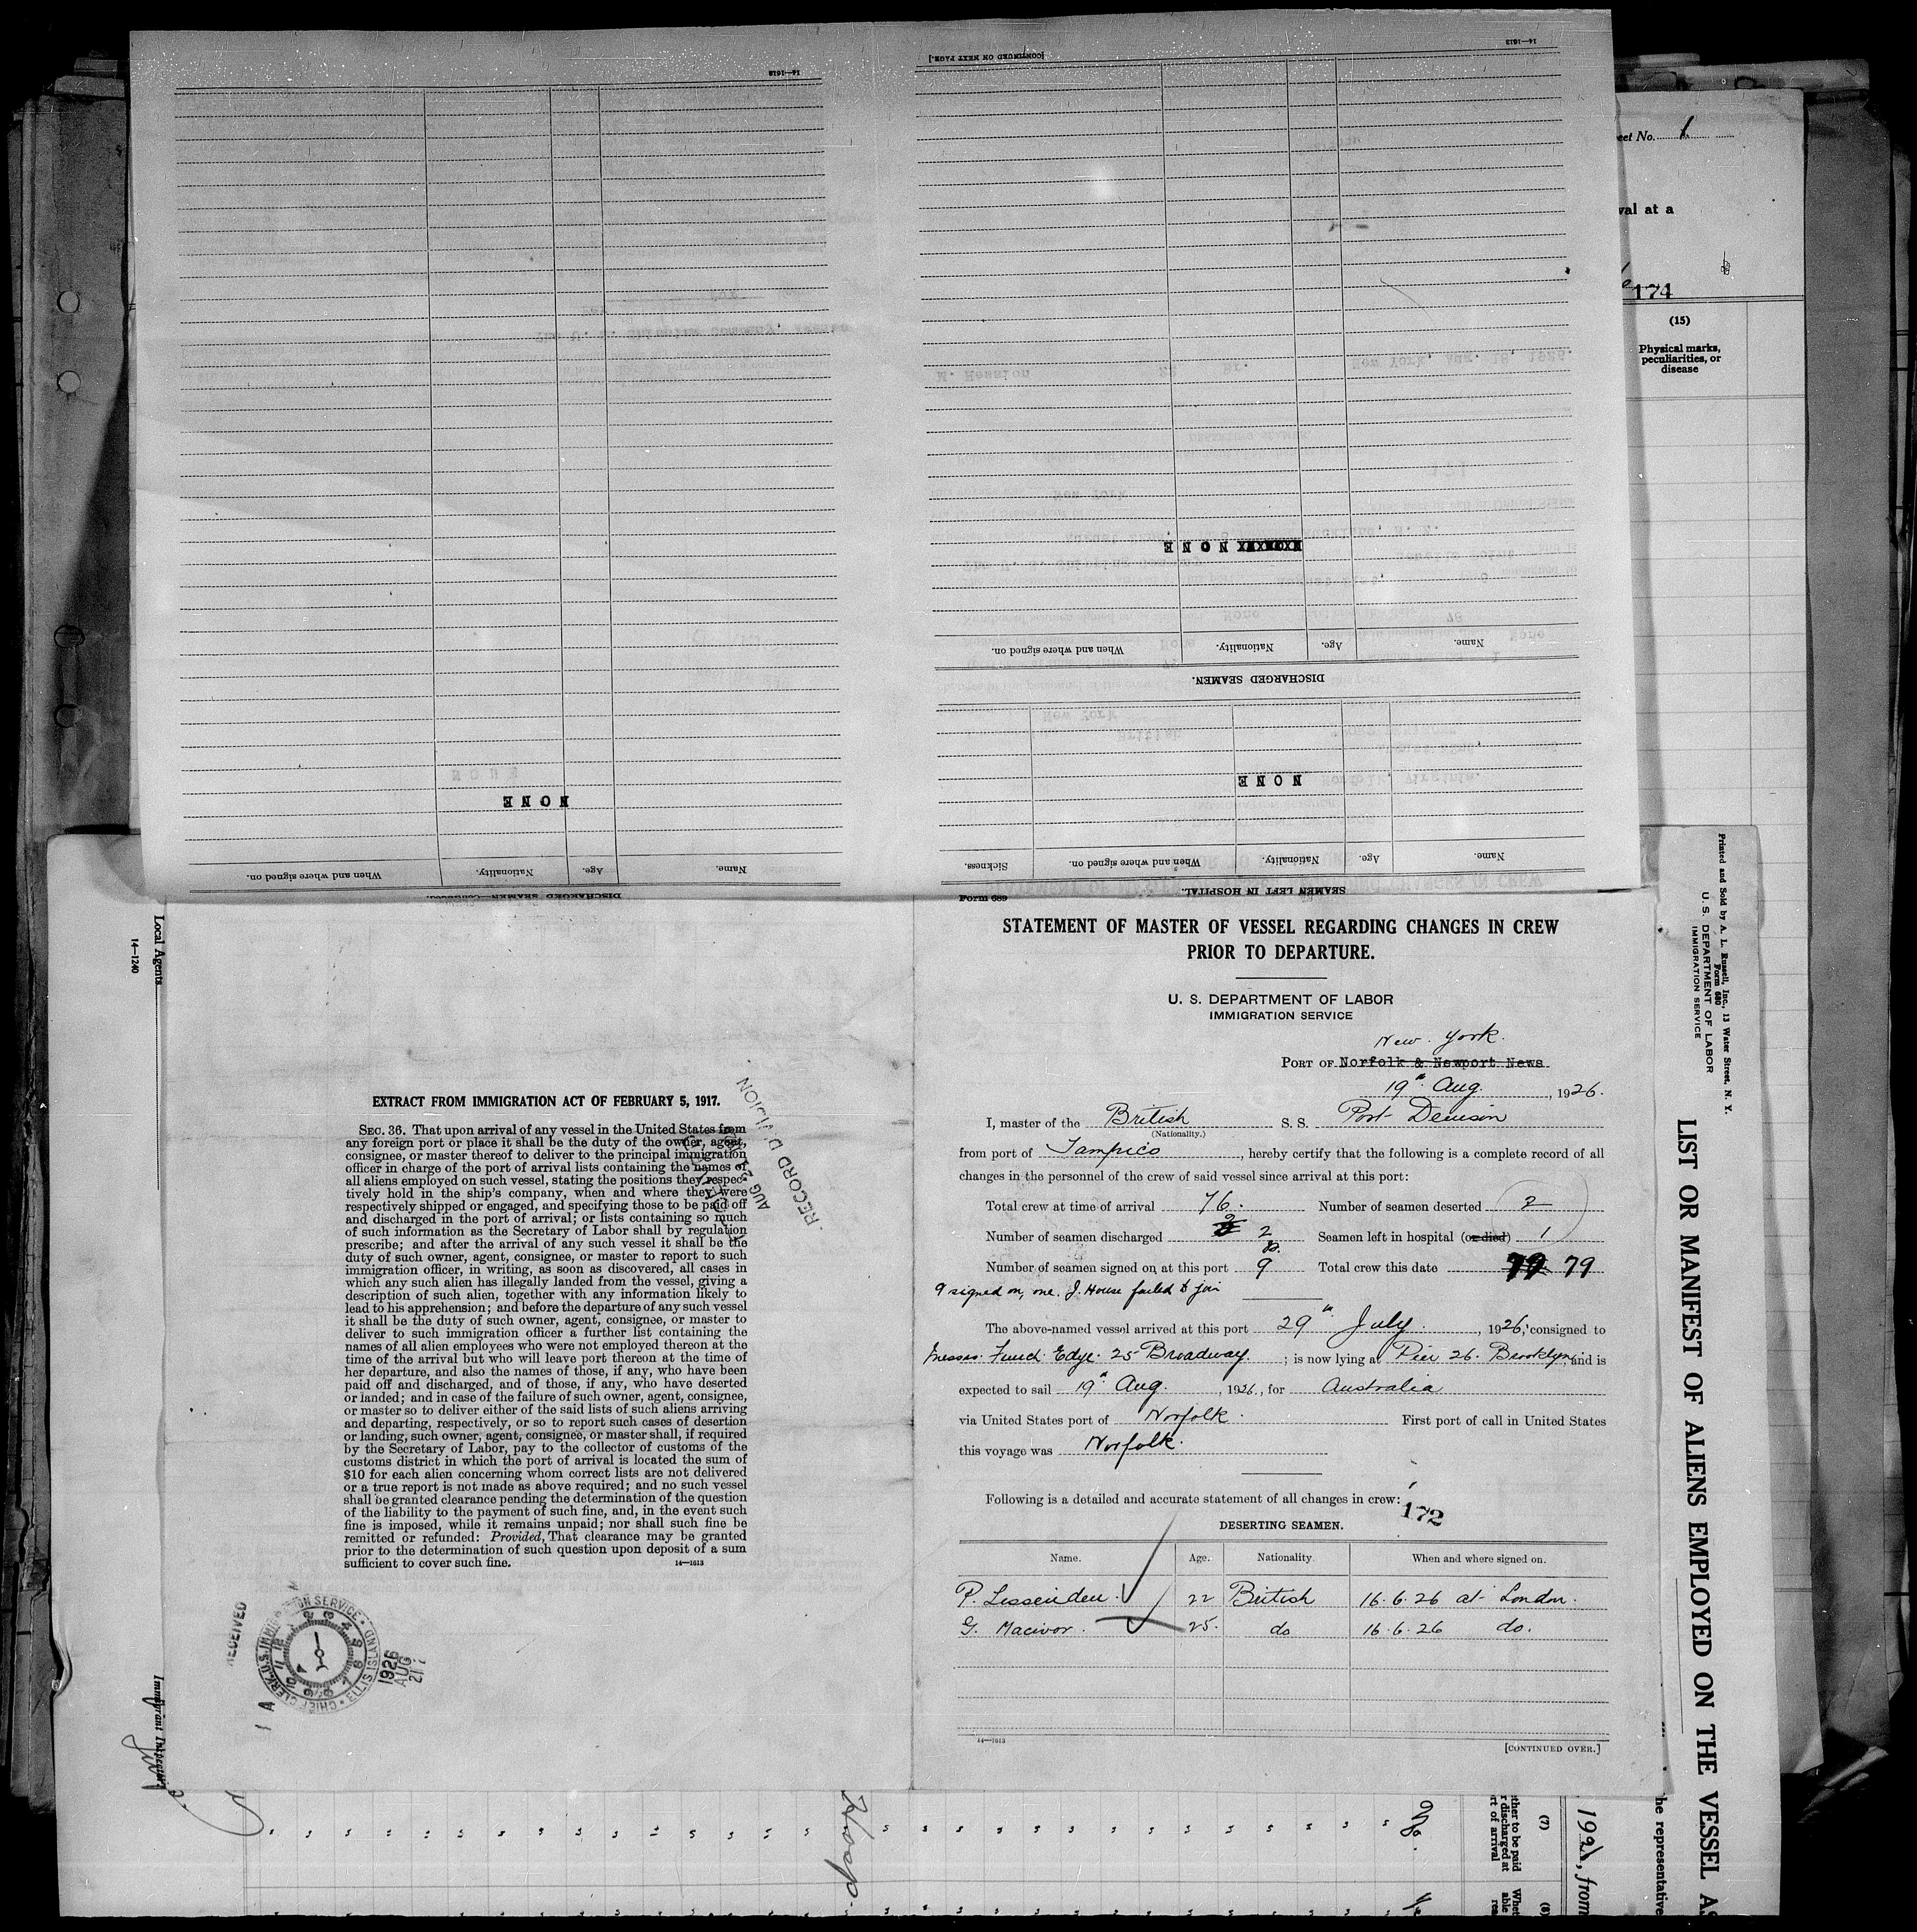 14—1613
14—1613
[CONTINUED ON NEXT PAGE.]
NONE
When and where signed on.
Nationality.
Age.
Name.
DISCHARGED SEAMEN.
NONE
Sickness.
When and where signed on.
Nationality.
Age.
Name.
SEAMEN LEFT IN HOSPITAL.
NONE
When and where signed on.
Nationality.
Age.
Name.
DISCHARGED SEAMEN—Continued.
eet No. 1
val at a
174
(15)
Physical marks,
peculiarities, or
disease
Form 689
STATEMENT OF MASTER OF VESSEL REGARDING CHANGES IN CREW
PRIOR TO DEPARTURE.
U. S. DEPARTMENT OF LABOR
IMMIGRATION SERVICE
New York.
PORT OF Norfolk & Newport News
19th Aug. , 1926.
I, master of the British S. S. Port Denison
(Nationality.)
from port of Tampico , hereby certify that the following is a complete record of all
changes in the personnel of the crew of said vessel since arrival at this port:
Total crew at time of arrival 76. Number of seamen deserted 2
Number of seamen discharged 2 Seamen left in hospital (or died) 1
Number of seamen signed on at this port 9 Total crew this date 79 79
9 signed on, one. J. House failed to join
The above-named vessel arrived at this port 29th July , 1926, consigned to
Messrs. Funch Edye. 25 Broadway. ; is now lying at Pier 26. Brooklyn and is
expected to sail 19th Aug. , 1926, for Australia
via United States port of Norfolk. First port of call in United States
this voyage was Norfolk.
Following is a detailed and accurate statement of all changes in crew:
172
DESERTING SEAMEN.
Name. Age. Nationality. When and where signed on.
P. Lissenden. 22 British 16.6.26 at London.
G. Macivor. 25. do 16.6.26 do.
14—1613
[CONTINUED OVER.]
EXTRACT FROM IMMIGRATION ACT OF FEBRUARY 5, 1917.
SEC. 36. That upon arrival of any vessel in the United States from
any foreign port or place it shall be the duty of the owner, agent,
consignee, or master thereof to deliver to the principal immigration
officer in charge of the port of arrival lists containing the names of
all aliens employed on such vessel, stating the positions they respec-
tively hold in the ship's company, when and where they were
respectively shipped or engaged, and specifying those to be paid off
and discharged in the port of arrival; or lists containing so much
of such information as the Secretary of Labor shall by regulation
prescribe; and after the arrival of any such vessel it shall be the
duty of such owner, agent, consignee, or master to report to such
immigration officer, in writing, as soon as discovered, all cases in
which any such alien has illegally landed from the vessel, giving a
description of such alien, together with any information likely to
lead to his apprehension; and before the departure of any such vessel
it shall be the duty of such owner, agent, consignee, or master to
deliver to such immigration officer a further list containing the
names of all alien employees who were not employed thereon at the
time of the arrival but who will leave port thereon at the time of
her departure, and also the names of those, if any, who have been
paid off and discharged, and of those, if any, who have deserted
or landed; and in case of the failure of such owner, agent, consignee,
or master so to deliver either of the said lists of such aliens arriving
and departing, respectively, or so to report such cases of desertion
or landing, such owner, agent, consignee, or master shall, if required
by the Secretary of Labor, pay to the collector of customs of the
customs district in which the port of arrival is located the sum of
$10 for each alien concerning whom correct lists are not delivered
or a true report is not made as above required; and no such vessel
shall be granted clearance pending the determination of the question
of the liability to the payment of such fine, and, in the event such
fine is imposed, while it remains unpaid; nor shall such fine be
remitted or refunded: Provided, That clearance may be granted
prior to the determination of such question upon deposit of a sum
sufficient to cover such fine.
14—1613
RECORD DIVISION
AUG 24
RECEIVED
CHIEF CLERK, U.S. IMMIGRATION SERVICE • ELLIS ISLAND
1926
AUG
21
14—1240
Local Agents
Immigrant Inspector
Printed and Sold by A. L. Russell, Inc., 13 Water Street, N. Y.
Form 680
U. S. DEPARTMENT OF LABOR
IMMIGRATION SERVICE
LIST OR MANIFEST OF ALIENS EMPLOYED ON THE VESSEL AS
he representative
192 , from
(7)
ther to be paid
r discharged at
rt of arrival
(8)